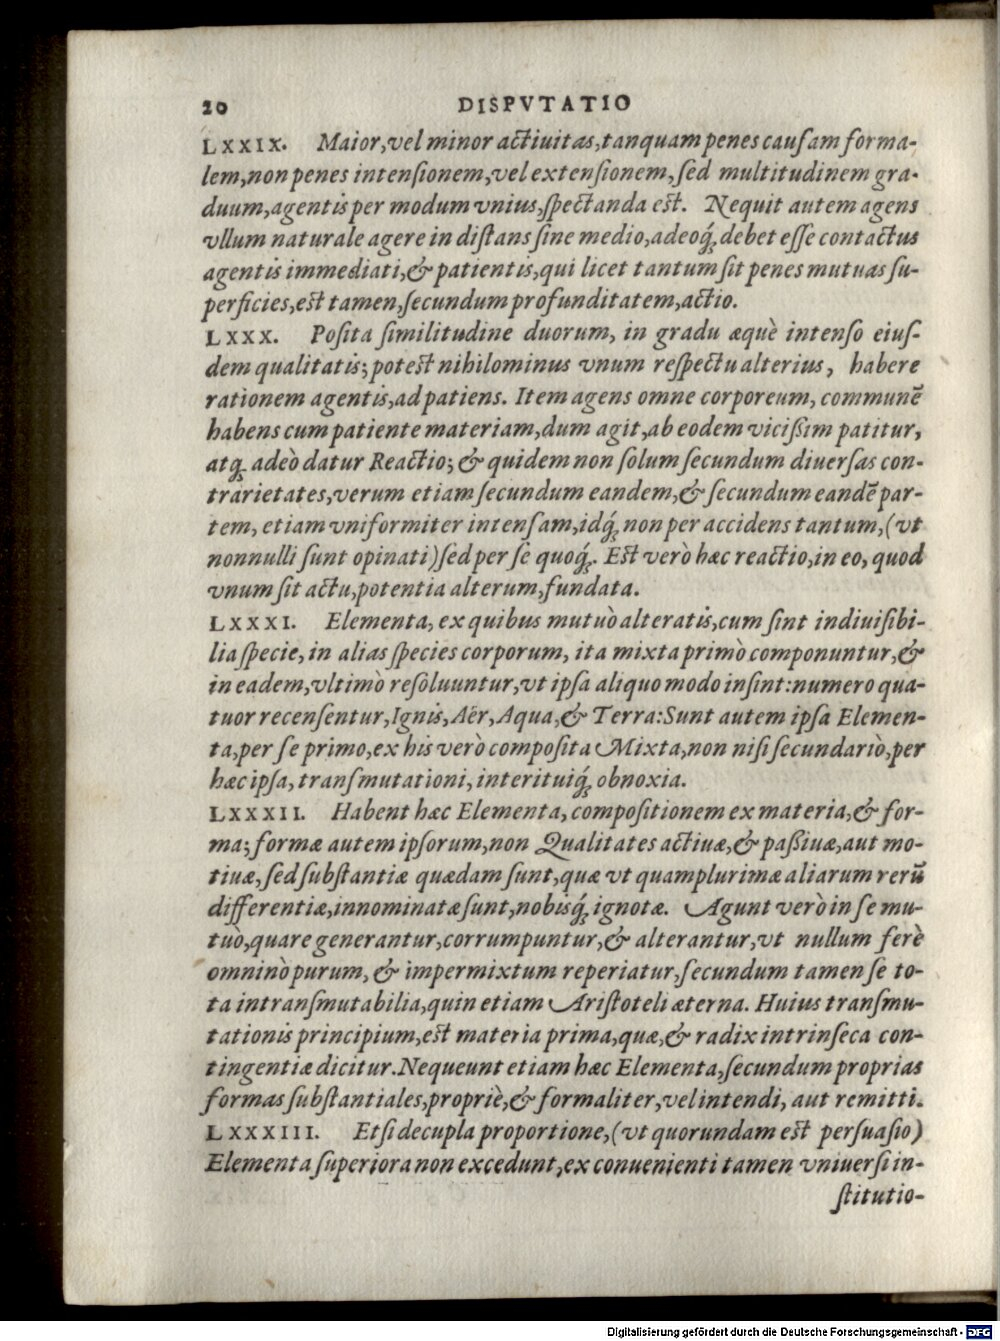 20 DISPVTATIO
LXXIX. Maior, vel minor actiuitas, tanquam penes cauſam forma-
lem, non penes intenſionem, vel extenſionem, ſed multitudinem gra-
duum, agentis per modum vnius, ſpectanda eſt. Nequit autem agens
vllum naturale agere in diſtans ſine medio, adeoq́; debet eſſe contactus
agentis immediati, & patientis, qui licet tantum ſit penes mutuas ſu-
perficies, eſt tamen, ſecundum profunditatem, actio.
LXXX. Poſita ſimilitudine duorum, in gradu æquè intenſo eiuſ-
dem qualitatis; poteſt nihilominus vnum reſpectu alterius, habere
rationem agentis, ad patiens. Item agens omne corporeum, communē
habens cum patiente materiam, dum agit, ab eodem vicißim patitur,
atq; adeò datur Reactio; & quidem non ſolum ſecundum diuerſas con-
trarietates, verum etiam ſecundum eandem, & ſecundum eandē par-
tem, etiam vniformiter intenſam, idq́; non per accidens tantum, (vt
nonnulli ſunt opinati) ſed per ſe quoq́;. Eſt verò hæc reactio, in eo, quod
vnum ſit actu, potentia alterum, fundata.
LXXXI. Elementa, ex quibus mutuò alteratis, cum ſint indiuiſibi-
lia ſpecie, in alias ſpecies corporum, ita mixta primò componuntur, &
in eadem, vltimò reſoluuntur, vt ipſa aliquo modo inſint: numero qua-
tuor recenſentur, Ignis, Aër, Aqua, & Terra: Sunt autem ipſa Elemen-
ta, per ſe primo, ex his verò compoſita Mixta, non niſi ſecundariò, per
hæc ipſa, tranſmutationi, interituiq́; obnoxia.
LXXXII. Habent hæc Elementa, compoſitionem ex materia, & for-
ma; formæ autem ipſorum, non Qualitates actiuæ, & paßiuæ, aut mo-
tiuæ, ſed ſubſtantiæ quædam ſunt, quæ vt quamplurimæ aliarum rerū
differentiæ, innominatæ ſunt, nobisq́; ignotæ. Agunt verò in ſe mu-
tuò, quare generantur, corrumpuntur, & alterantur, vt nullum ferè
omninò purum, & impermixtum reperiatur, ſecundum tamen ſe to-
ta intranſmutabilia, quin etiam Ariſtoteli æterna. Huius tranſmu-
tationis principium, eſt materia prima, quæ, & radix intrinſeca con-
tingentiæ dicitur. Nequeunt etiam hæc Elementa, ſecundum proprias
formas ſubſtantiales, propriè, & formaliter, vel intendi, aut remitti.
LXXXIII. Etſi decupla proportione, (vt quorundam eſt perſuaſio)
Elementa ſuperiora non excedunt, ex conuenienti tamen vniuerſi in-
ſtitutio-
Digitalisierung gefördert durch die Deutsche Forschungsgemeinschaft - DFG